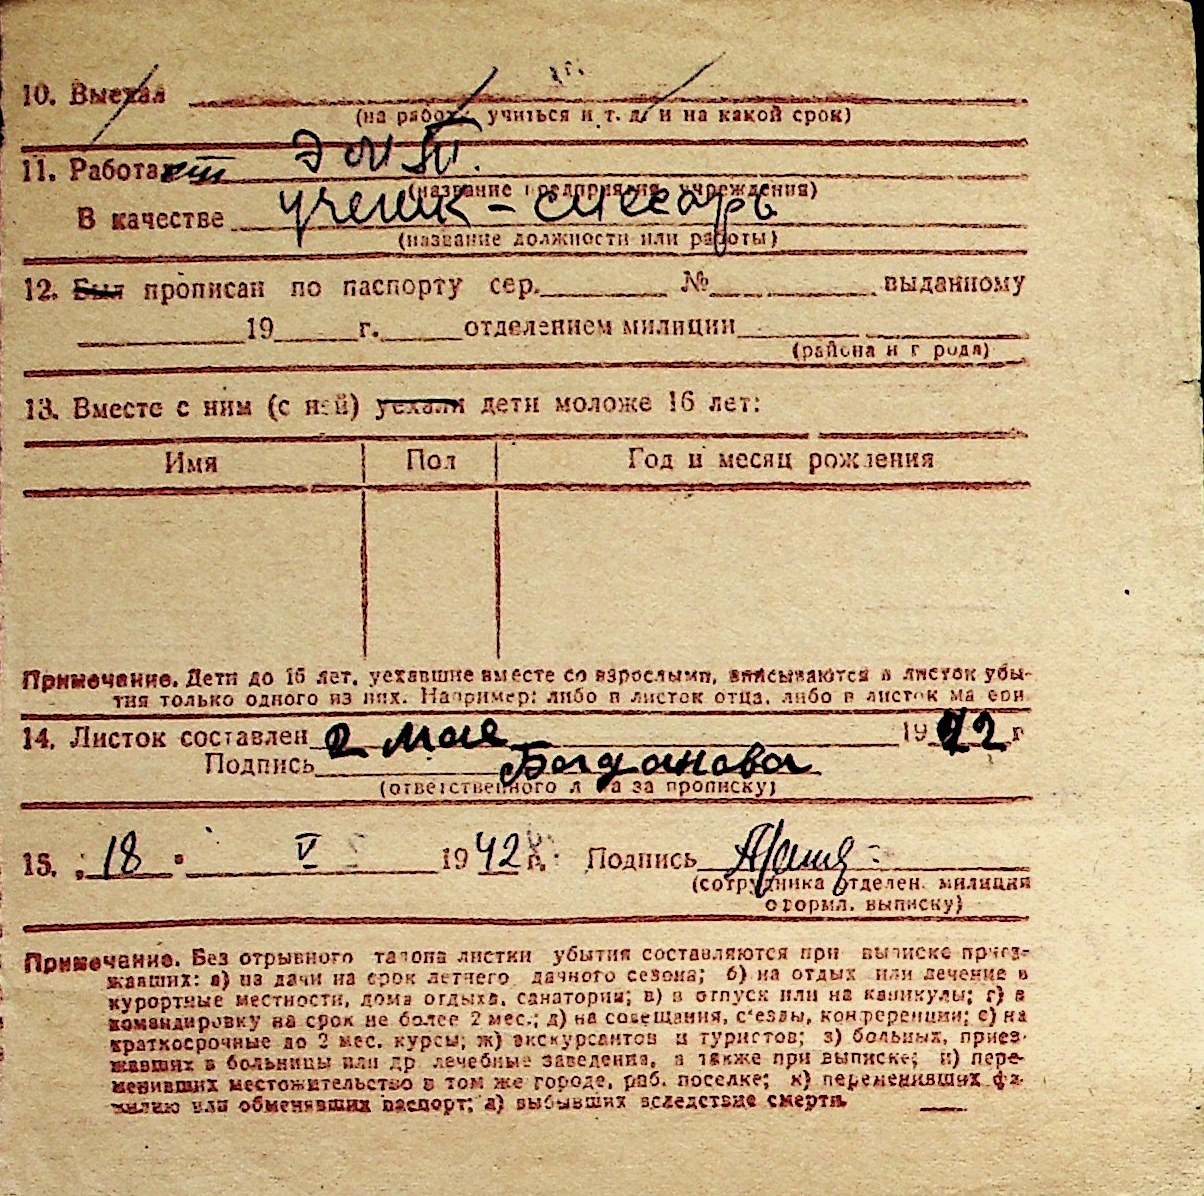 10. Выехал
(на работу, учиться и т. д. и на какой срок)
11. Работает
(название предприятия, учреждения)
В качестве ученик-слесарь
(название должности или работы)
12. Был прописан по паспорту сер. № выданному
19 г. отделением милиции
(района и города)
13. Вместе с ним (с ней) уехали дети моложе 16 лет:
Имя Пол Год и месяц рождения
Примечание. Дети до 16 лет, уехавшие вместе со взрослыми, вписываются в листок убы-
тия только одного из них. Например: либо в листок отца, либо в листок матери
14. Листок составлен 2 мая 1942 г
Подпись Богданова
(ответственного лица за прописку)
15. 18 V 1942 г. Подпись
(сотрудника отделен. милиции
оформл. выписку)
Примечание. Без отрывного талона листки убытия составляются при выписке приез-
жавших: а) из дачи на срок летнего дачного сезона; б) на отдых или лечение в
курортные местности, дома отдыха, санатории; в) в отпуск или на каникулы; г) в
командировку на срок не более 2 мес.; д) на совещания, с'езды, конференции; е) на
краткосрочные до 2 мес. курсы; ж) экскурсантов и туристов; з) больных, приез-
жавших в больницы или др лечебные заведения, а также при выписке; и) пере-
менивших местожительство в том же городе, раб. поселке; к) переменивших фа-
милию или обменявших паспорт; л) выбывших вследствие смерти.